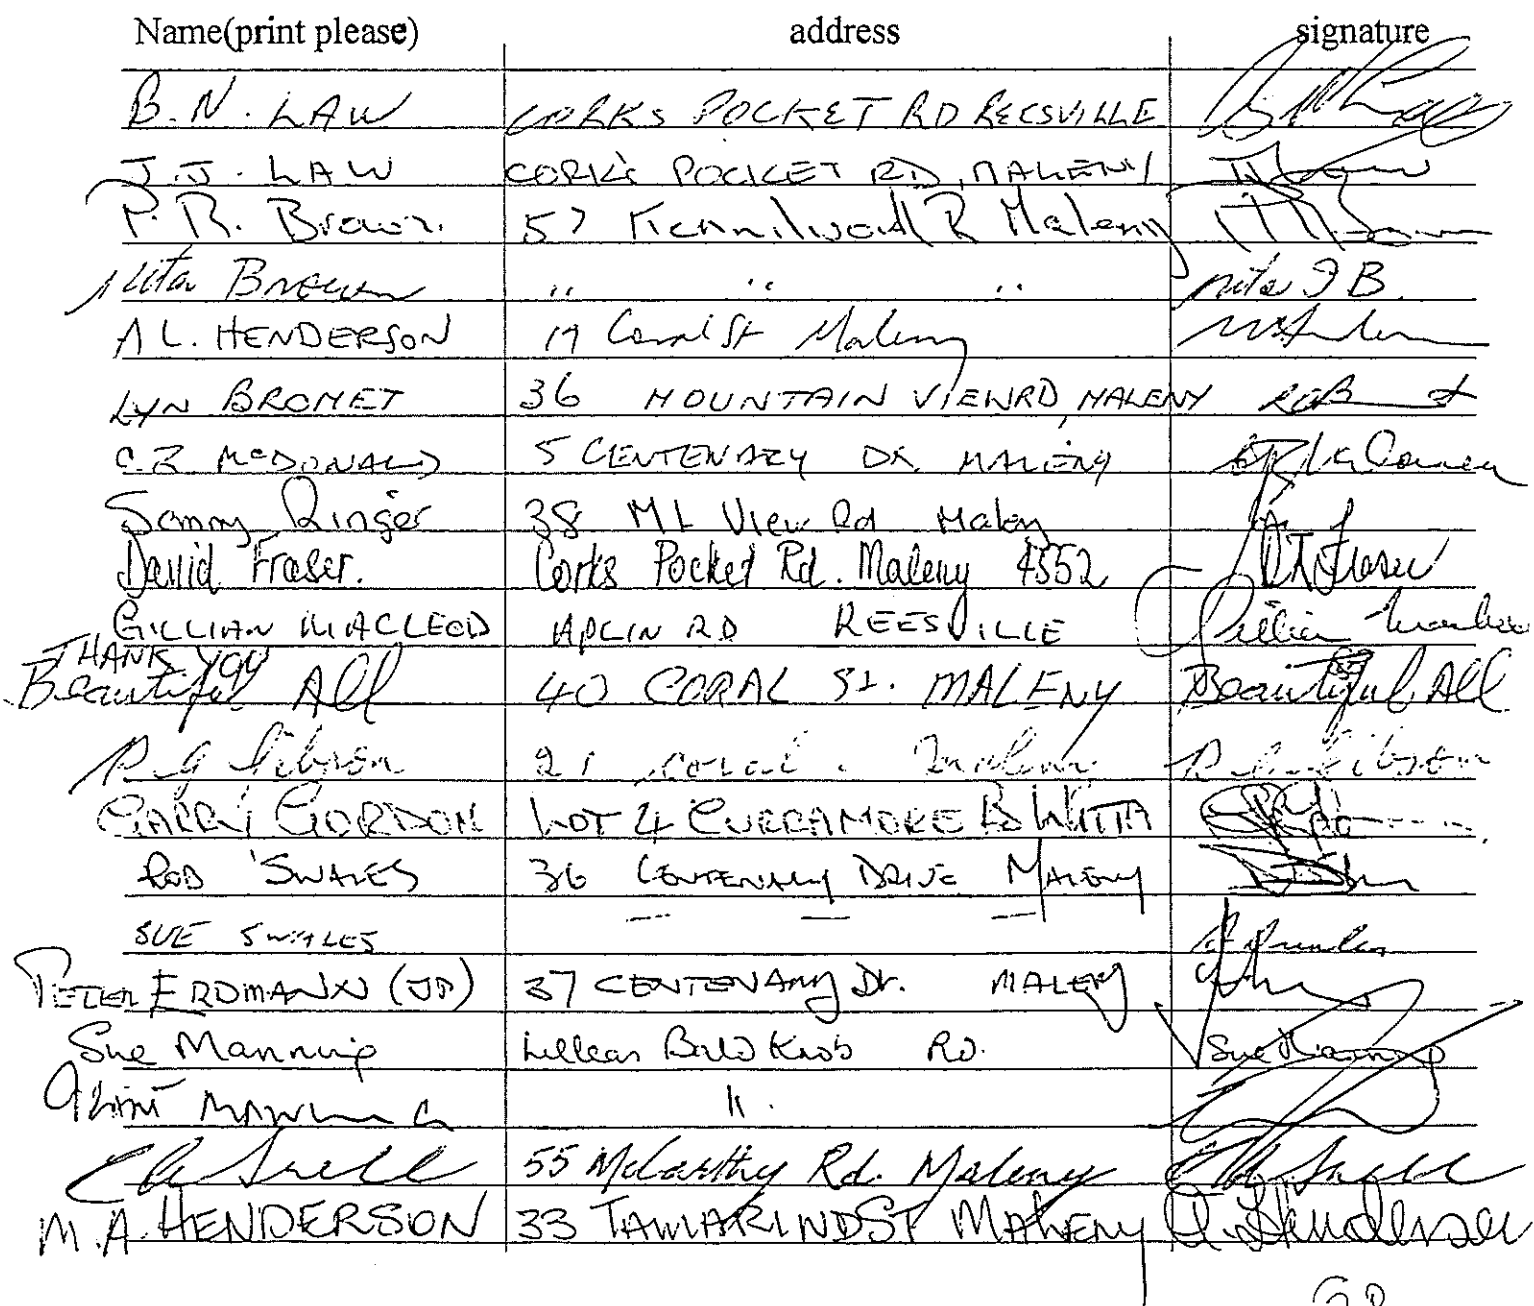 Name(print please) address signature
B.N. LAW CORKS POCKET RD REESVILLE
J.J. LAW CORK'S POCKET RD, MALENY
P. R. Brown. 57 Kennilworth R Maleny
Nita Brown " " " nita J B.
A L. HENDERSON 17 Coral St Maleny
LYN BROMET 36 MOUNTAIN VIEW RD, MALENY
C.Z McDONALD 5 CENTENARY DR. MALENY
Jenny Ringer 38 Mt View Rd Maleny
David Fraser. Corks Pocket Rd. Maleny 4552 Fraser
GILLIAN MACLEOD APLIN RD REESVILLE Gillian
THANK YOU
Beautiful All 40 CORAL St. MALENY Beautiful All
R G Gibson 21 Coral Maleny Gibson
GARRY GORDON LOT 4 CURRAMORE Rd WITTA
ROD SWALES 36 CENTENARY DRIVE MALENY
SUE SWALES — — —
PETER ERDMANN (JP) 37 CENTENARY Dr. MALENY
Sue Manning Bald Knob RD. Sue Manning
MANNING "
Snell 55 McCarthy Rd. Maleny Snell
M.A. HENDERSON 33 TAMARIND ST MALENY Henderson